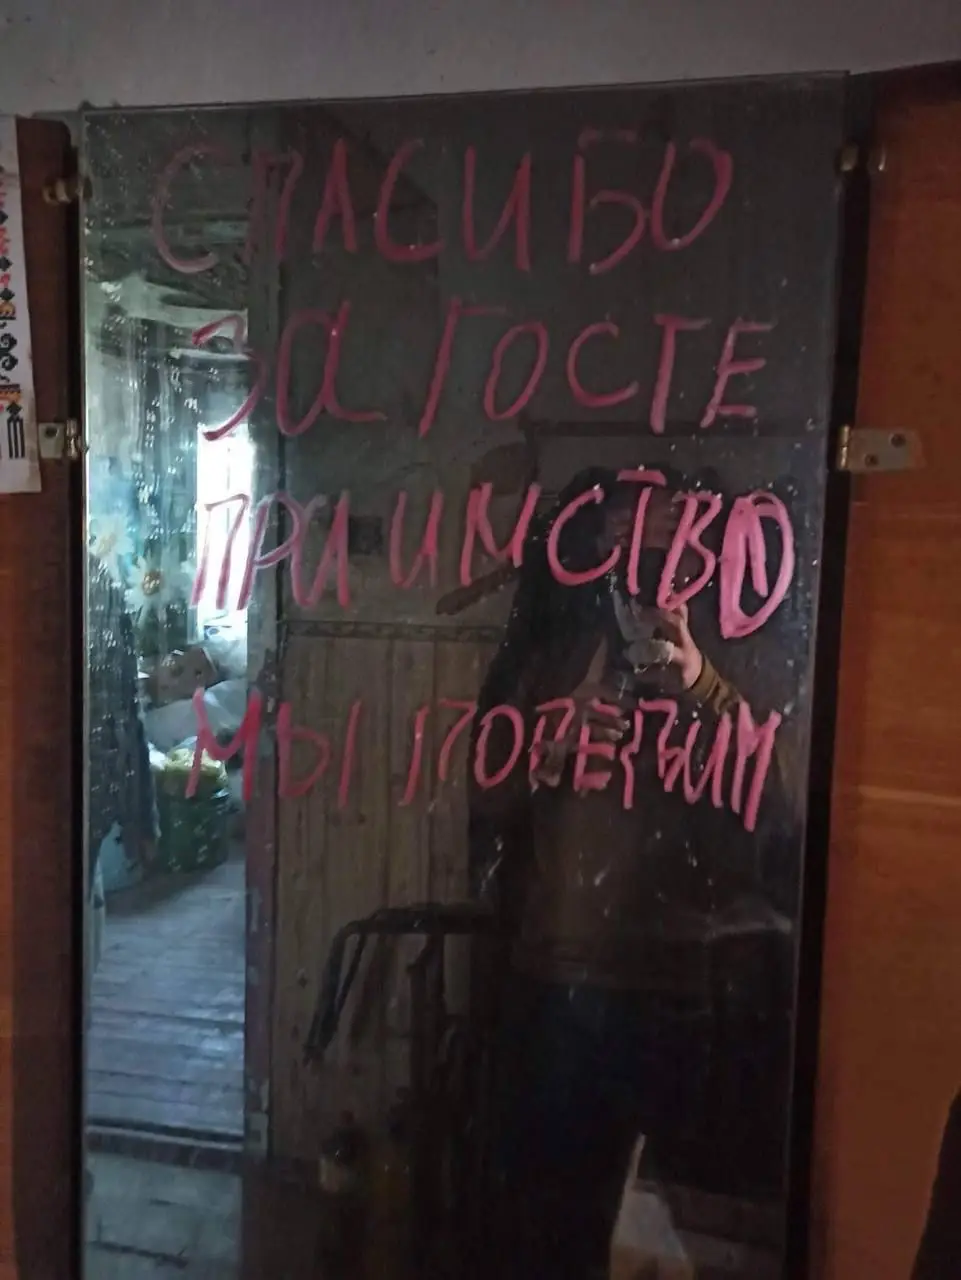 СПАСИБО
ЗА ГОСТЕ
ПРАИМСТВО
МЫ ПОВЕРЫИМ